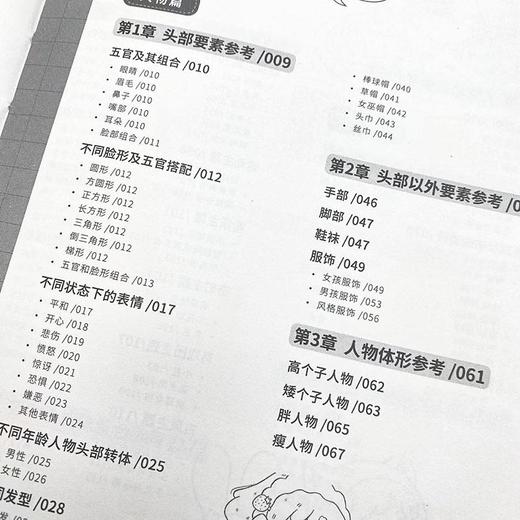 物篇
第1章 头部要素参考 /009
五官及其组合 /010
• 眼睛 /010
• 眉毛 /010
• 鼻子 /010
• 嘴部 /010
• 耳朵 /010
• 脸部组合 /011
不同脸形及五官搭配 /012
• 圆形 /012
• 方圆形 /012
• 正方形 /012
• 长方形 /012
• 三角形 /012
• 倒三角形 /012
• 梯形 /012
• 五官和脸形组合 /013
不同状态下的表情 /017
• 平和 /017
• 开心 /018
• 悲伤 /019
• 愤怒 /020
• 惊讶 /021
• 恐惧 /022
• 嫌恶 /023
• 其他表情 /024
不同年龄人物头部转体 /025
男性 /025
女性 /026
同发型 /028
发 /029
• 棒球帽 /040
• 草帽 /041
• 女巫帽 /042
• 头巾 /043
• 丝巾 /044
第2章 头部以外要素参考 /0
手部 /046
脚部 /047
鞋袜 /047
服饰 /049
• 女孩服饰 /049
• 男孩服饰 /053
• 风格服饰 /056
第3章 人物体形参考 /061
高个子人物 /062
矮个子人物 /063
胖人物 /065
瘦人物 /067